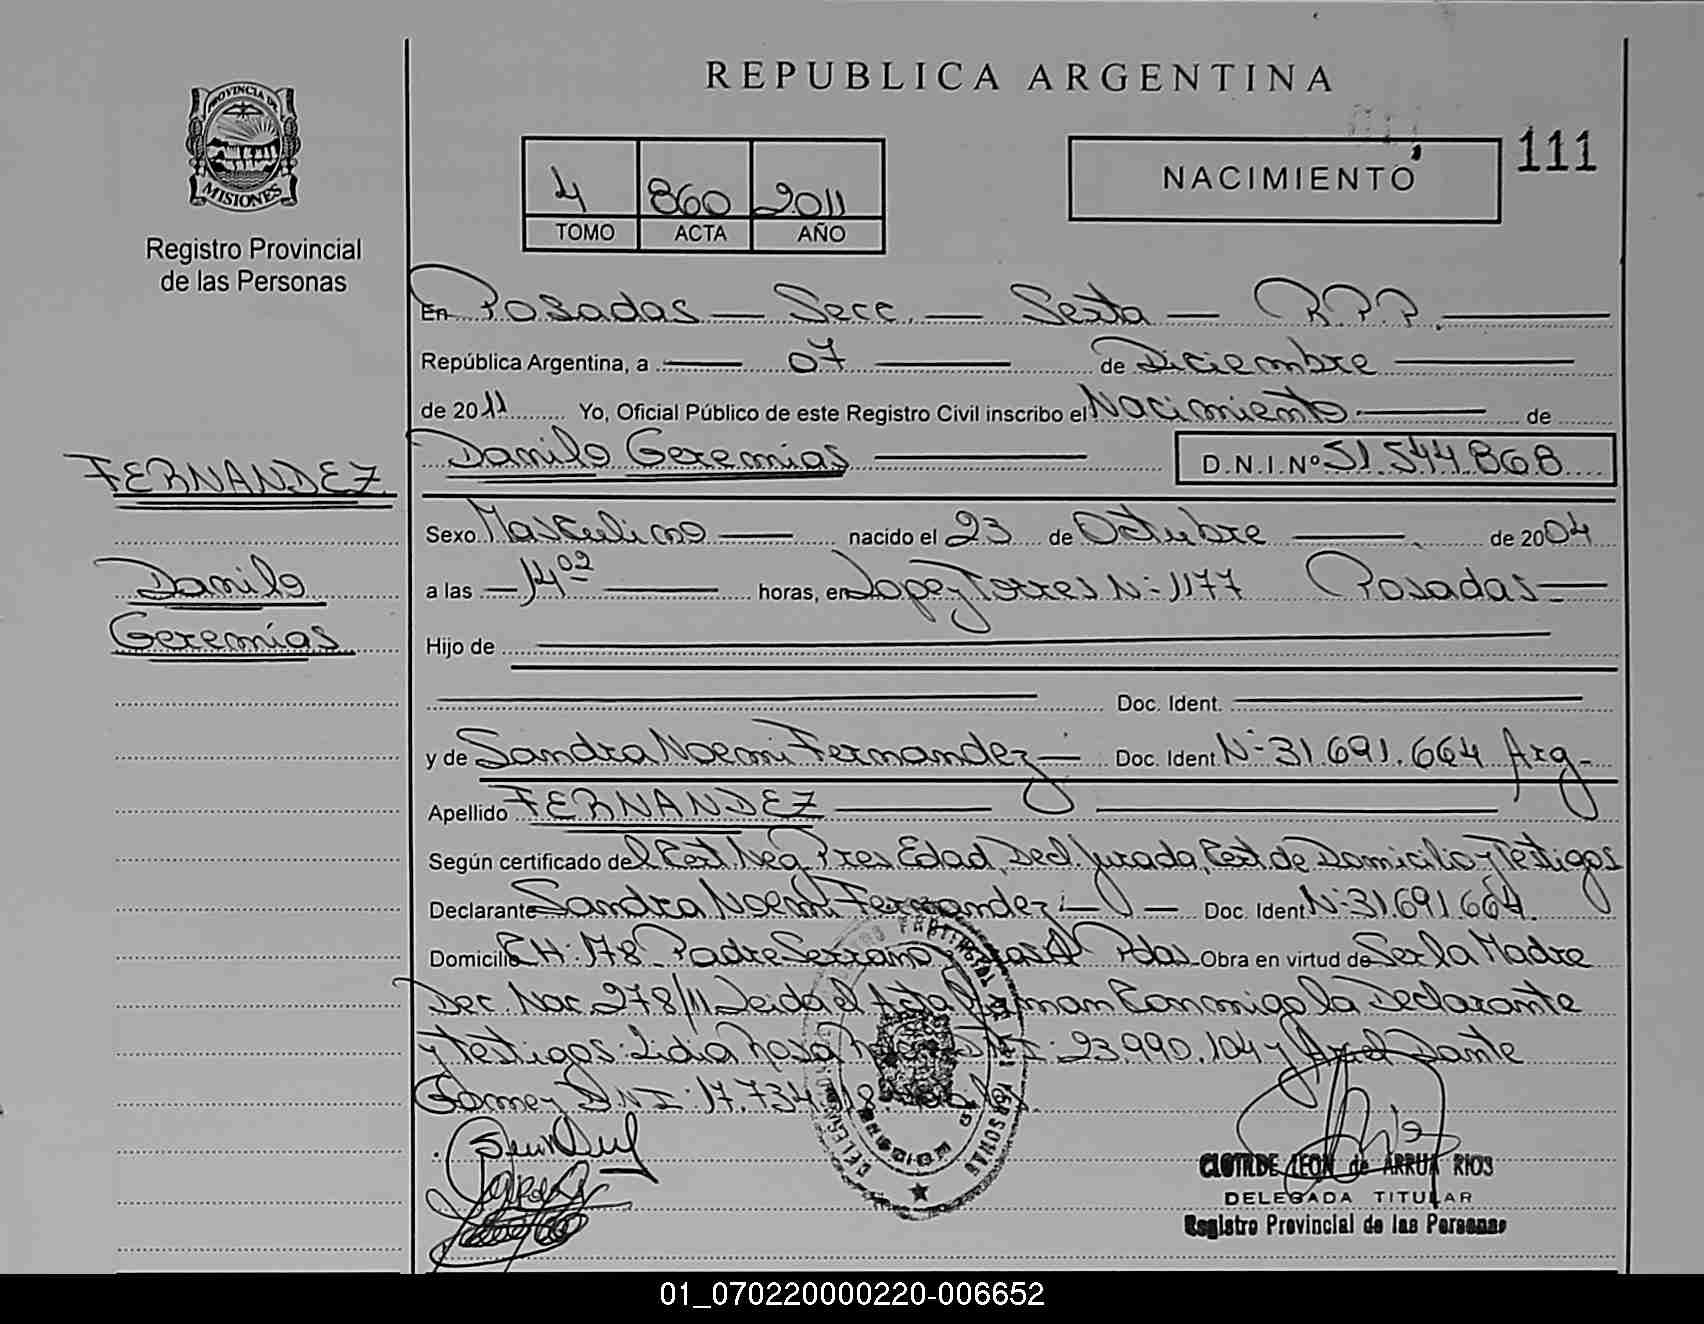 REPUBLICA ARGENTINA
PROVINCIA DE
MISIONES
Registro Provincial
de las Personas
4 860 2011
TOMO ACTA AÑO
NACIMIENTO
111
En Posadas — Secc. — Sexta — R.P.P.
República Argentina, a — 07 — de Diciembre
de 2011 Yo, Oficial Público de este Registro Civil inscribo el Nacimiento. — de
Danilo Geremias — D.N.I.Nº 51.544.868
FERNANDEZ
Danilo
Geremias
Sexo Masculino — nacido el 23 de Octubre — de 2004
a las — 14:02 — horas, en Lopez Torres N: 1177 Posadas —
Hijo de
Doc. Ident.
y de Sandra Noemi Fernandez — Doc. Ident N: 31.691.664 Arg-
Apellido FERNANDEZ
Según certificado del Cert. Neg. Pres. Edad, Decl. Jurada, Cert. de Domicilio y Testigos
Declarante Sandra Noemi Fernandez — Doc. Ident N: 31.691.664.
Domicilio CH: 178 Padre Serrano Pdas. Obra en virtud de Ser la Madre
Dec. Nac. 278/11 Leida el Acta Firman Conmigo la Declarante
y testigos: Lidia Rosa DNI: 23.990.104 y Axel Dante
Gomez DNI: 17.734
CLOTILDE LEON de ARRUA RIOS
DELEGADA TITULAR
Registro Provincial de las Personas
01_070220000220-006652